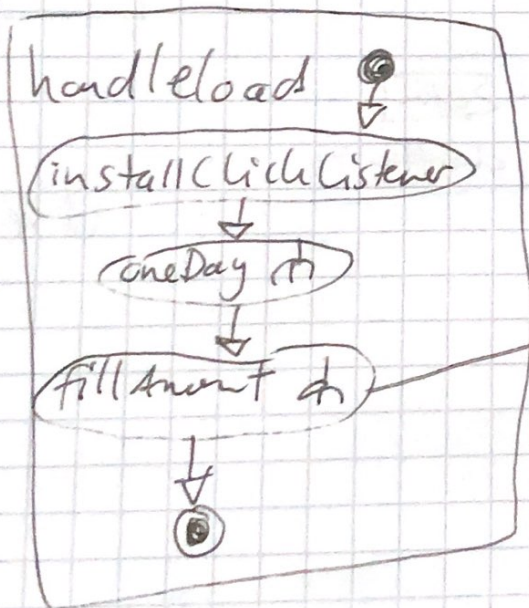 handleload
installClickListener
oneDay
fillAmount